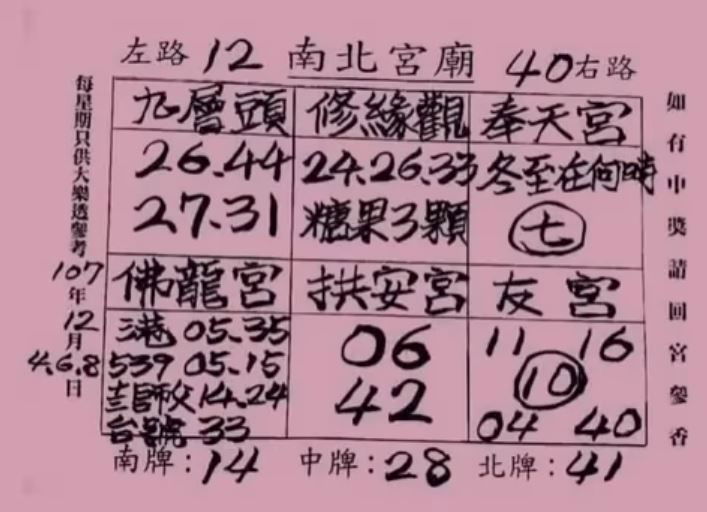 左路 12 南北宮廟 40 右路
每星期只供大樂透參考
107年
12月
4.6.8日
九層頭 修緣觀 奉天宮
26.44 24.26.33 冬至在何時
27.31 糖果3顆 七
佛龍宮 拱安宮 友宮
三港 05.35 06 11 16
539 05.15 10
師父 14.24 42
台號 33 04 40
南牌:14 中牌:28 北牌:41
如有中獎請回宮參香